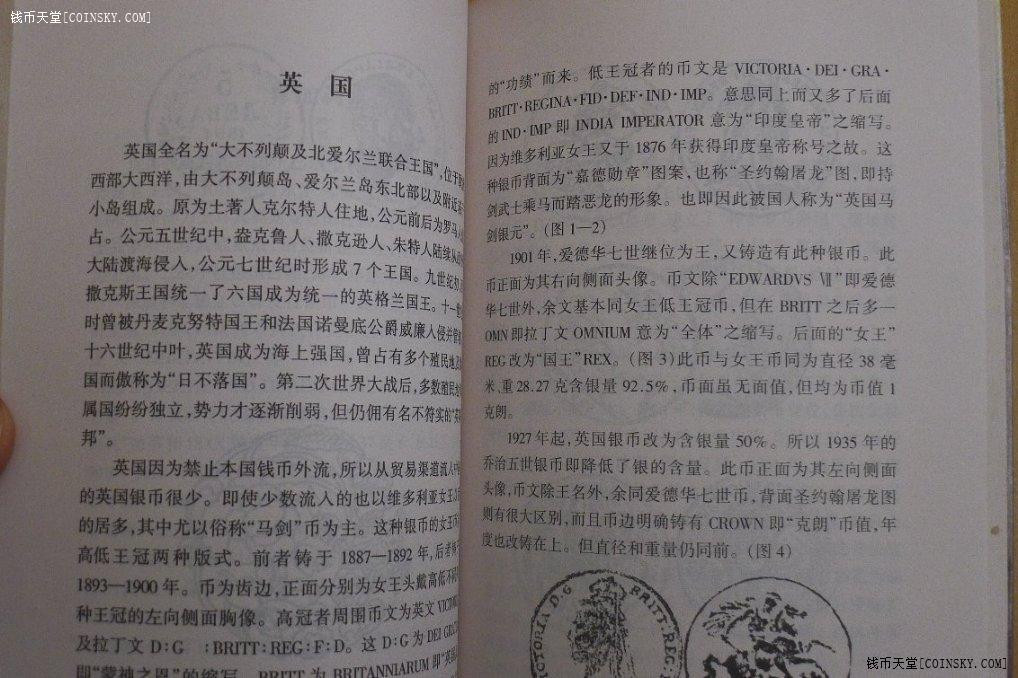 钱币天堂[COINSKY.COM]
英 国
英国全名为“大不列颠及北爱尔兰联合王国”,位于
西部大西洋,由大不列颠岛、爱尔兰岛东北部以及附近
小岛组成。原为土著人克尔特人住地,公元前后为罗马
占。公元五世纪中,盎克鲁人、撒克逊人、朱特人陆续从
大陆渡海侵入,公元七世纪时形成 7 个王国。九世纪初
撒克斯王国统一了六国成为统一的英格兰国王。十一世
时曾被丹麦克努特国王和法国诺曼底公爵威廉入侵并管
十六世纪中叶,英国成为海上强国,曾占有多个殖民地
国而傲称为“日不落国”。第二次世界大战后,多数殖民
属国纷纷独立,势力才逐渐削弱,但仍拥有名不符实的“英
邦”。
英国因为禁止本国钱币外流,所以从贸易渠道流入
的英国银币很少。即使少数流入的也以维多利亚女王
的居多,其中尤以俗称“马剑”币为主。这种银币的女王
高低王冠两种版式。前者铸于 1887—1892 年,后者
1893—1900 年。币为齿边,正面分别为女王头戴高低不同
种王冠的左向侧面胸像。高冠者周围币文为英文 VICTOR
及拉丁文 D:G :BRITT:REG:F:D。这 D:G 为 DEI GR
即“蒙神之恩”的缩写 BRITT 为 BRITANNIARUM 即“英国
的“功绩”而来。低王冠者的币文是 VICTORIA·DEI·GRA·
BRITT·REGINA·FID·DEF·IND·IMP。意思同上而又多了后面
的 IND·IMP 即 INDIA IMPERATOR 意为“印度皇帝”之缩写。
因为维多利亚女王又于 1876 年获得印度皇帝称号之故。这
种银币背面为“嘉德勋章”图案,也称“圣约翰屠龙”图,即持
剑武士乘马而踏恶龙的形象。也即因此被国人称为“英国马
剑银元”。(图 1—2)
1901 年,爱德华七世继位为王,又铸造有此种银币。此
币正面为其右向侧面头像。币文除“EDWARDVS Ⅶ”即爱德
华七世外,余文基本同女王低王冠币,但在 BRITT 之后多一
OMN 即拉丁文 OMNIUM 意为“全体”之缩写。后面的“女王”
REG 改为“国王”REX。(图 3)此币与女王币同为直径 38 毫
米、重 28.27 克含银量 92.5%,币面虽无面值,但均为币值 1
克朗。
1927 年起,英国银币改为含银量 50%。所以 1935 年的
乔治五世银币即降低了银的含量。此币正面为其左向侧面
头像,币文除王名外,余同爱德华七世币,背面圣约翰屠龙图
则有很大区别,而且币边明确铸有 CROWN 即“克朗”币值,年
度也改铸在上。但直径和重量仍同前。(图 4)
VICTORIA D:G BRITT:REG:
钱币天堂[COINSKY.COM]